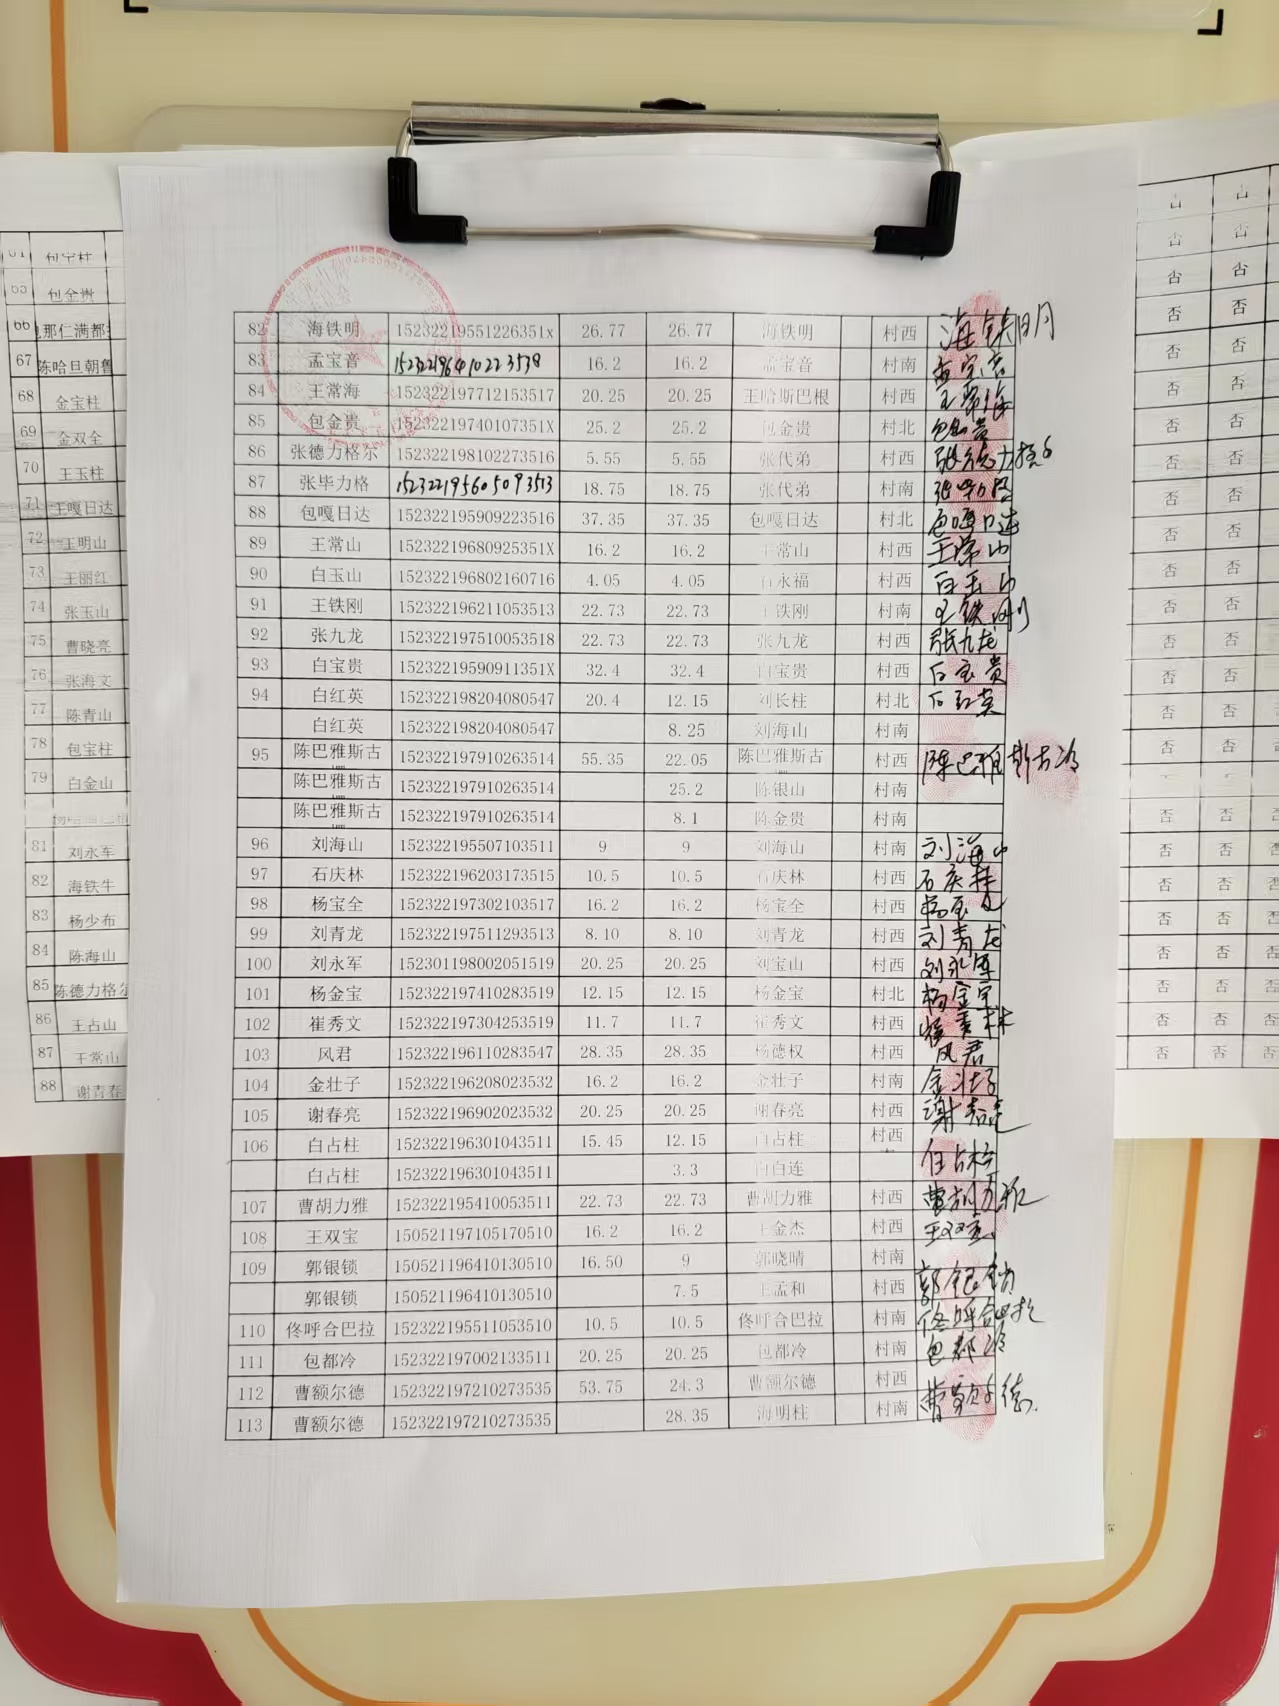 82 海铁明 15232219551226351x 26.77 26.77 海铁明 村西 海铁明
83 孟宝音 152322196410223538 16.2 16.2 孟宝音 村南 孟宝音
84 王常海 152322197712153517 20.25 20.25 王哈斯巴根 村西 王常海
85 包金贵 15232219740107351X 25.2 25.2 包金贵 村北 包金贵
86 张德力格尔 152322198102273516 5.55 5.55 张代弟 村西 张德力格尔
87 张毕力格 152322195605093513 18.75 18.75 张代弟 村南 张毕力格
88 包嘎日达 152322195909223516 37.35 37.35 包嘎日达 村北 包嘎日达
89 王常山 15232219680925351X 16.2 16.2 王常山 村西 王常山
90 白玉山 152322196802160716 4.05 4.05 石永福 村西 白玉山
91 王铁刚 152322196211053513 22.73 22.73 王铁刚 村南 王铁刚
92 张九龙 152322197510053518 22.73 22.73 张九龙 村西 张九龙
93 白宝贵 15232219590911351X 32.4 32.4 白宝贵 村西 白宝贵
94 白红英 152322198204080547 20.4 12.15 刘长柱 村北 白红英
白红英 152322198204080547 8.25 刘海山 村南
95 陈巴雅斯古 152322197910263514 55.35 22.05 陈巴雅斯古 村西 陈巴雅斯古冷
陈巴雅斯古 152322197910263514 25.2 陈银山 村南
陈巴雅斯古 152322197910263514 8.1 陈金贵 村南
96 刘海山 152322195507103511 9 9 刘海山 村南 刘海山
97 石庆林 152322196203173515 10.5 10.5 石庆林 村西 石庆林
98 杨宝全 152322197302103517 16.2 16.2 杨宝全 村西
99 刘青龙 152322197511293513 8.10 8.10 刘青龙 村西 刘青龙
100 刘永军 152301198002051519 20.25 20.25 刘宝山 村西 刘永军
101 杨金宝 152322197410283519 12.15 12.15 杨金宝 村北 杨金宝
102 崔秀文 152322197304253519 11.7 11.7 崔秀文 村西
103 风君 152322196110283547 28.35 28.35 杨德权 村西 风君
104 金壮子 152322196208023532 16.2 16.2 金壮子 村南 金壮子
105 谢春亮 152322196902023532 20.25 20.25 谢春亮 村西 谢春亮
106 白占柱 152322196301043511 15.45 12.15 白占柱 村西
白占柱 152322196301043511 3.3 白白连 白占柱
107 曹胡力雅 152322195410053511 22.73 22.73 曹胡力雅 村西 曹胡力雅
108 王双宝 150521197105170510 16.2 16.2 王金杰 村西 王双宝
109 郭银锁 150521196410130510 16.50 9 郭晓晴 村南
郭银锁 150521196410130510 7.5 王孟和 村西 郭银锁
110 佟呼合巴拉 152322195511053510 10.5 10.5 佟呼合巴拉 村南 佟呼合巴拉
111 包都冷 152322197002133511 20.25 20.25 包都冷 村南 包都冷
112 曹额尔德 152322197210273535 53.75 24.3 曹额尔德 村西
113 曹额尔德 152322197210273535 28.35 海明柱 村南 曹额尔德
包金贵
66 那仁满都
67 陈哈旦朝鲁
68 金宝柱
69 金双全
70 王玉柱
71 王嘎日达
72 王明山
73 王丽红
74 张玉山
75 曹晓亮
76 张海文
77 陈青山
78 包宝柱
79 白金山
81 刘永军
82 海铁牛
83 杨少布
84 陈海山
85 陈德力格尔
86 王占山
87 王常山
88 谢青春
否 否
否 否
否 否
否 否
否 否
否 否
否 否
否 否
否 否
否 否
否 否
否 否
否 否
否 否
否 否
否 否
否 否
否 否
否 否 否
否 否 否
否 否 否
否 否 否
否 否 否
否 否 否
否 否 否
否 否 否